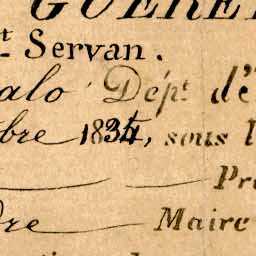 GUERE
St Servan.
alo Dépt. d'
bre 1834, sous l
Pr
dre Maire